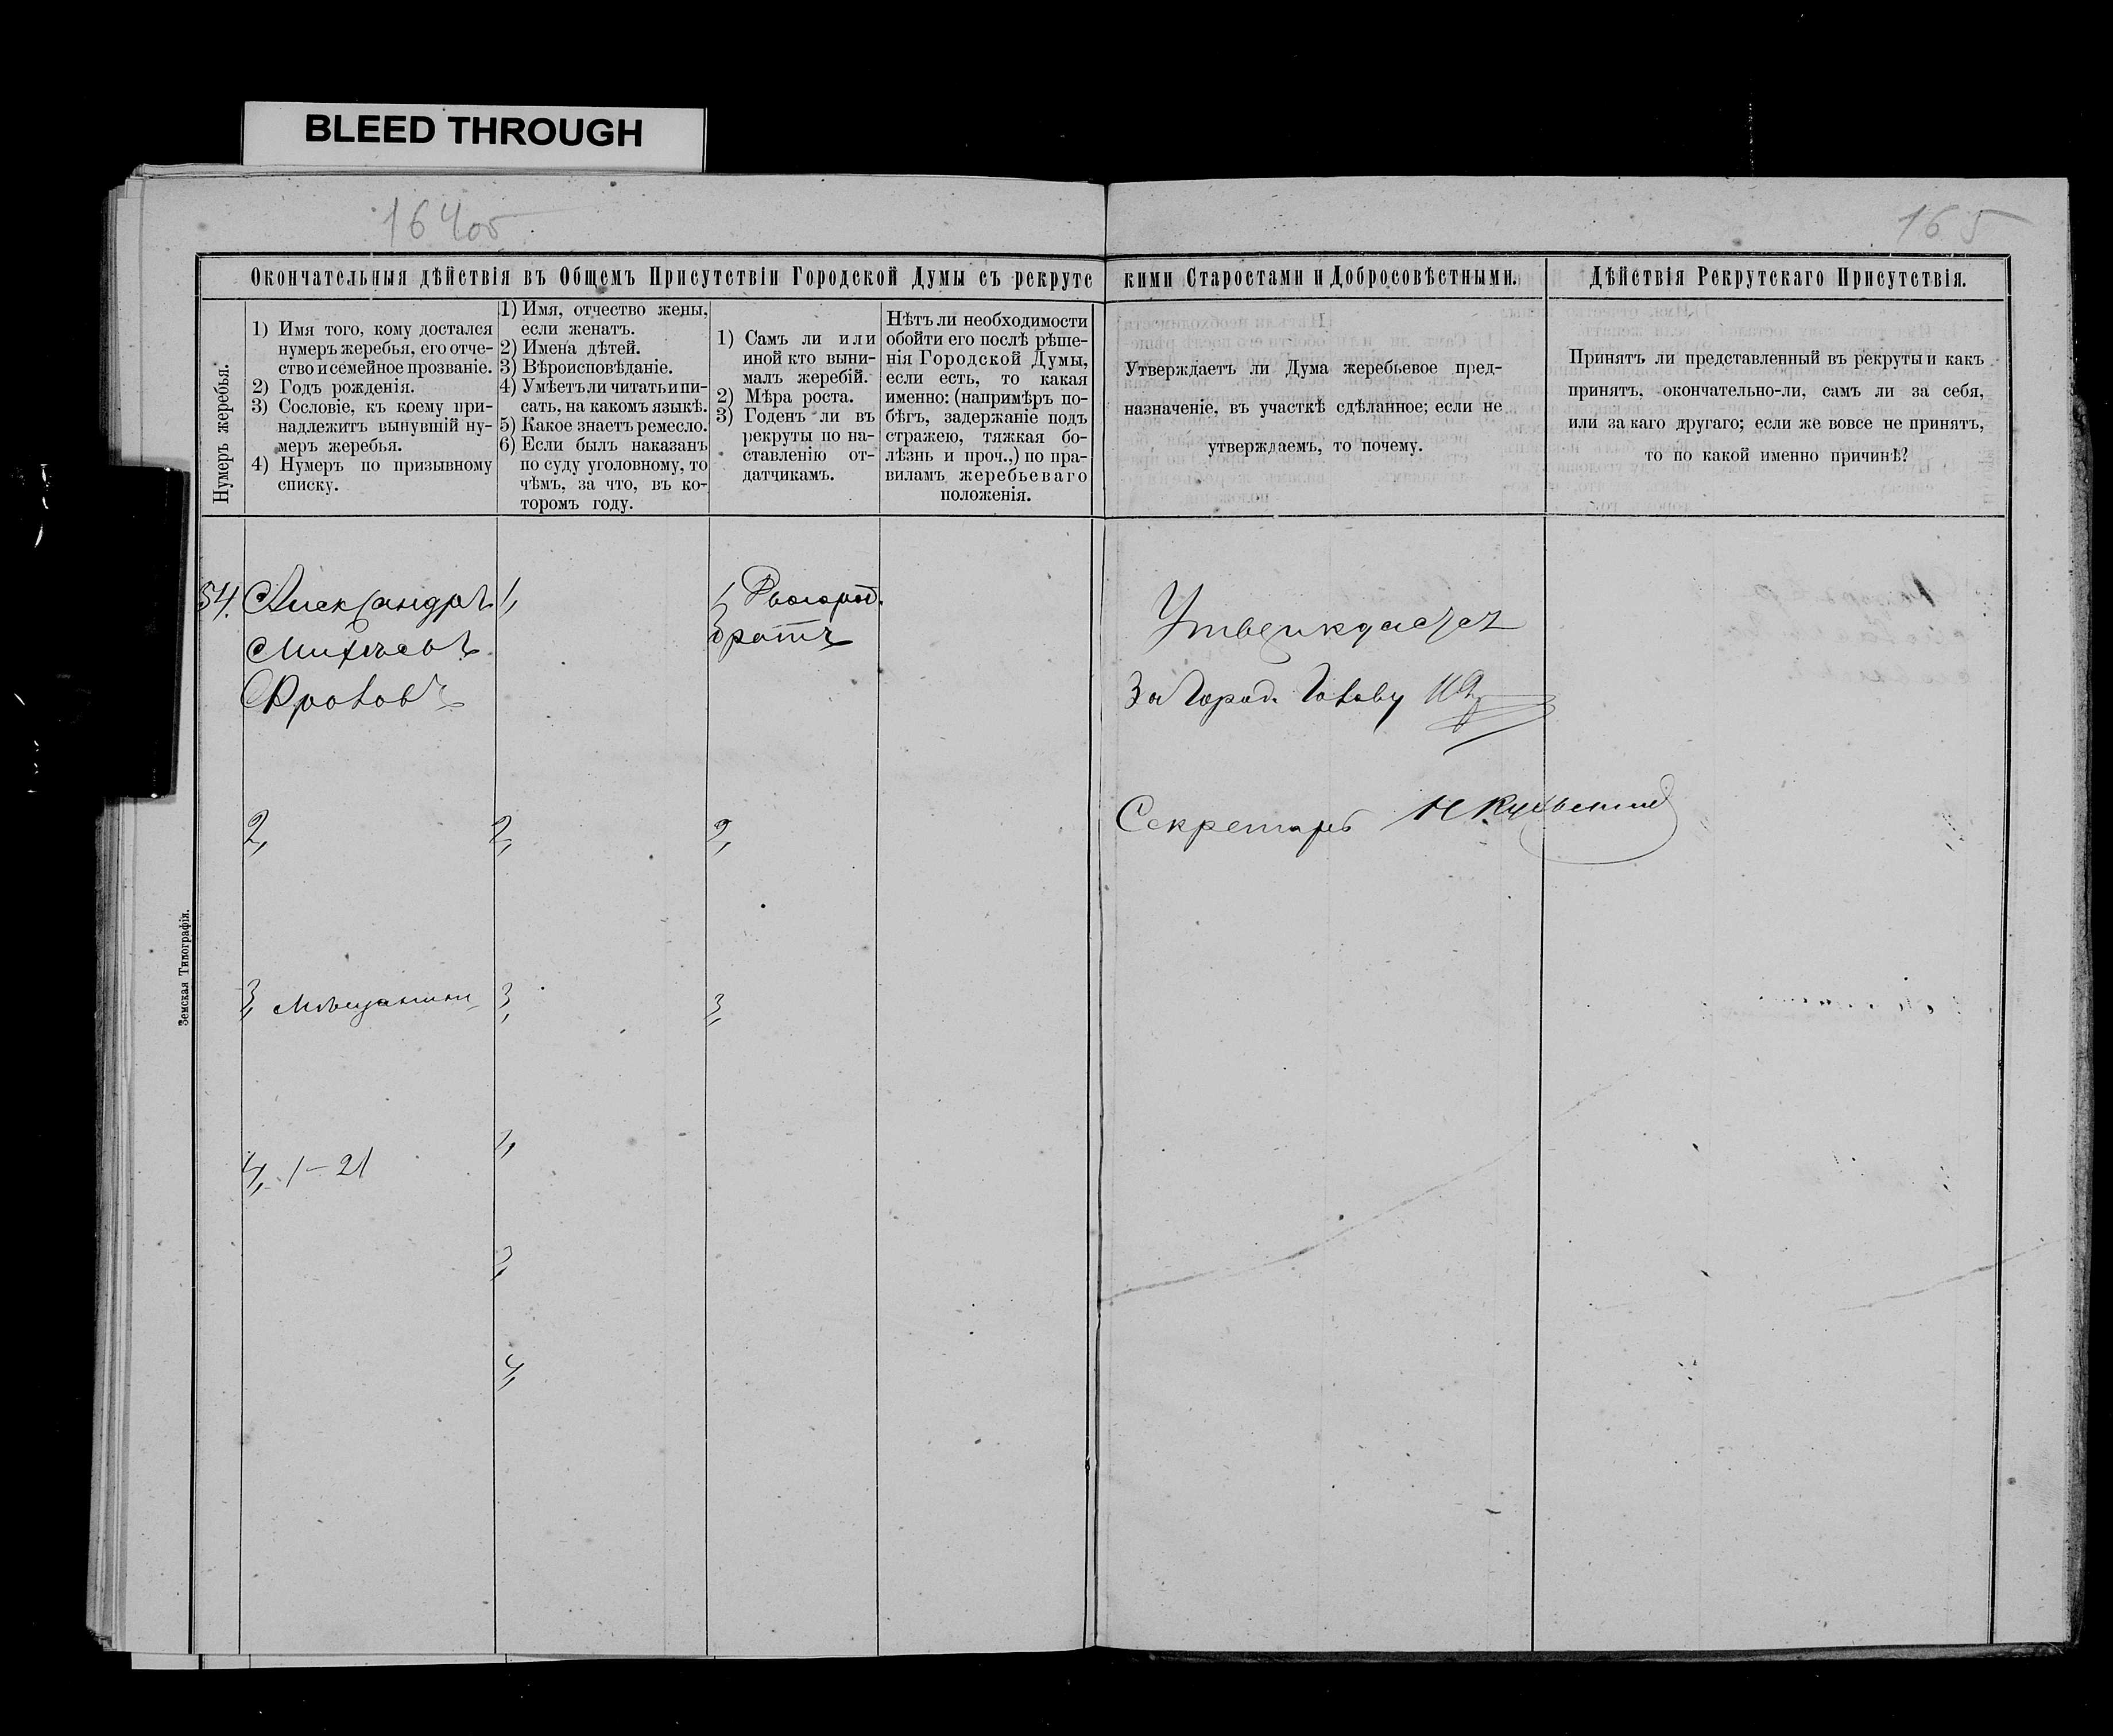 BLEED THROUGH
164об
165
Окончательныя дѣйствія въ Общемъ Присутствіи Городской Думы съ рекрутс
кими Старостами и Добросовѣстными.
Дѣйствія Рекрутскаго Присутствія.
Нумеръ жеребья.
1) Имя того, кому достался
нумеръ жеребья, его отче-
ство и семейное прозваніе.
2) Годъ рожденія.
3) Сословіе, къ коему при-
надлежитъ вынувшій ну-
меръ жеребья.
4) Нумеръ по призывному
списку.
1) Имя, отчество жены,
если женатъ.
2) Имена дѣтей.
3) Вѣроисповѣданіе.
4) Умѣетъ ли читать и пи-
сать, на какомъ языкѣ.
5) Какое знаетъ ремесло.
6) Если былъ наказанъ
по суду уголовному, то
чѣмъ, за что, въ ко-
торомъ году.
1) Самъ ли или
иной кто выни-
малъ жеребій.
2) Мѣра роста.
3) Годенъ ли въ
рекруты по на-
ставленію от-
датчикамъ.
Нѣтъ ли необходимости
обойти его послѣ рѣше-
нія Городской Думы,
если есть, то какая
именно: (напримѣръ по-
бѣгъ, задержаніе подъ
стражею, тяжкая бо-
лѣзнь и проч.,) по пра-
виламъ жеребьеваго
положенія.
Утверждаетъ ли Дума жеребьевое пред-
назначеніе, въ участкѣ сдѣланное; если не
утверждаемъ, то почему.
Принятъ ли представленный въ рекруты и какъ
принятъ, окончательно-ли, самъ ли за себя,
или за каго другаго; если же вовсе не принятъ,
то по какой именно причинѣ?
54.
Александръ
Михѣевъ
Фроловъ
2,
3, Мѣщанинъ
4, 1-21
1,
2,
3,
4,
1,
братъ
2,
3,
Утверждается
За Город. Голову
Секретарь
Земская Типографія.